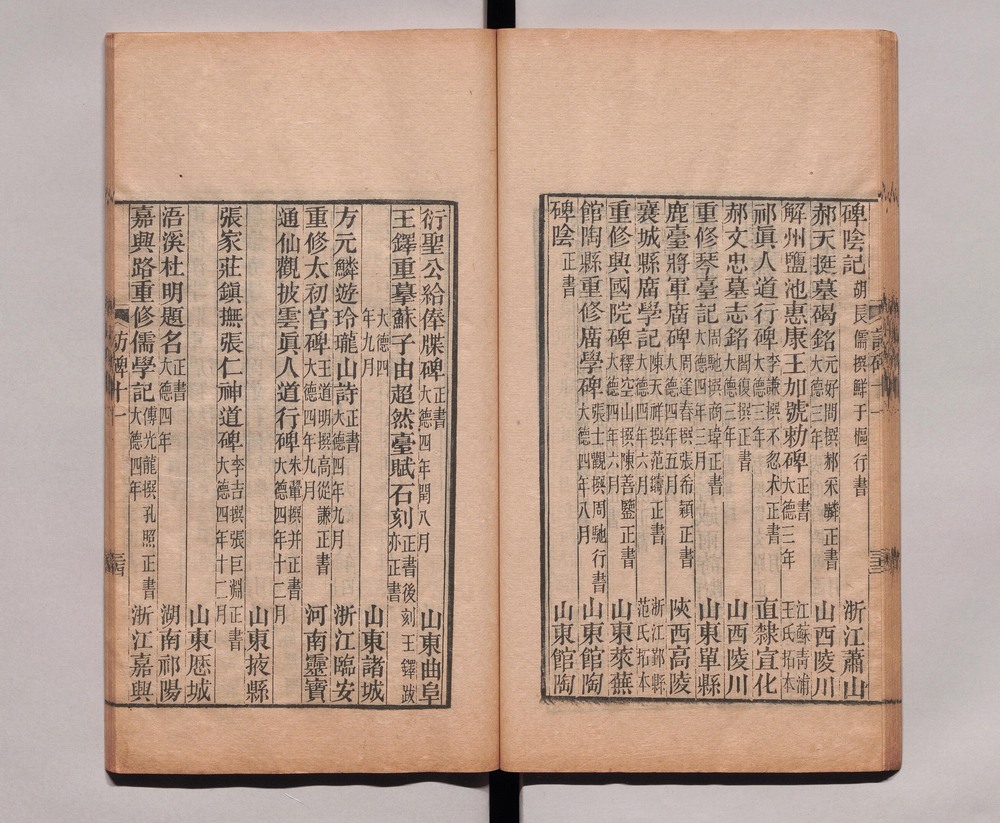 碑陰記 胡長儒撰鮮于樞行書 浙江蕭山
郝天挺墓碣銘 元好問撰郝采麟正書 大德三年 山西陵川
解州鹽池惠康王加號勅碑 正書 大德三年 江蘇青浦王氏拓本
祁眞人道行碑 李謙撰不忽木正書 大德三年 直隸宣化
郝文忠墓志銘 閻復撰正書 大德三年 山西陵川
重修琴臺記 周馳撰商瑋正書 大德四年三月 山東單縣
鹿臺將軍廣碑 周逢春撰張希穎正書 大德四年五月 陝西高陵
襄城縣廣學記 陳天祥撰范濤正書 大德四年六月 浙江鄞縣范氏拓本
重修興國院碑 釋空山撰陳善鑒正書 大德四年六月 山東萊蕪
館陶縣重修廣學碑 張士觀撰周馳行書 大德四年八月 山東館陶
碑陰 正書 山東館陶
衍聖公給俸牒碑 正書 大德四年閏八月 山東曲阜
王鐸重摹蘇子由超然臺賦石刻 正書後刻王鐸跋亦正書
大德四年九月 山東諸城
方元鱗遊玲瓏山詩 正書 大德四年九月 浙江臨安
重修太初宮碑 王道明撰高從謙正書 大德四年九月 河南靈寶
通仙觀披雲眞人道行碑 朱翬撰并正書 大德四年十二月
山東掖縣
張家莊鎭撫張仁神道碑 李吉撰張巨淵正書 大德四年十二月
山東歷城
浯溪杜明題名 正書 大德四年 湖南祁陽
嘉興路重修儒學記 傅光龍撰孔照正書 大德四年 浙江嘉興
訪碑十一